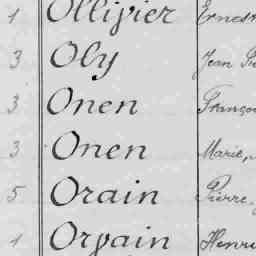 1 Ollivier Ernest
3 Oly Jean
3 Onen
3 Onen Marie,
5 Orain Pierre,
1 Orvain Henri